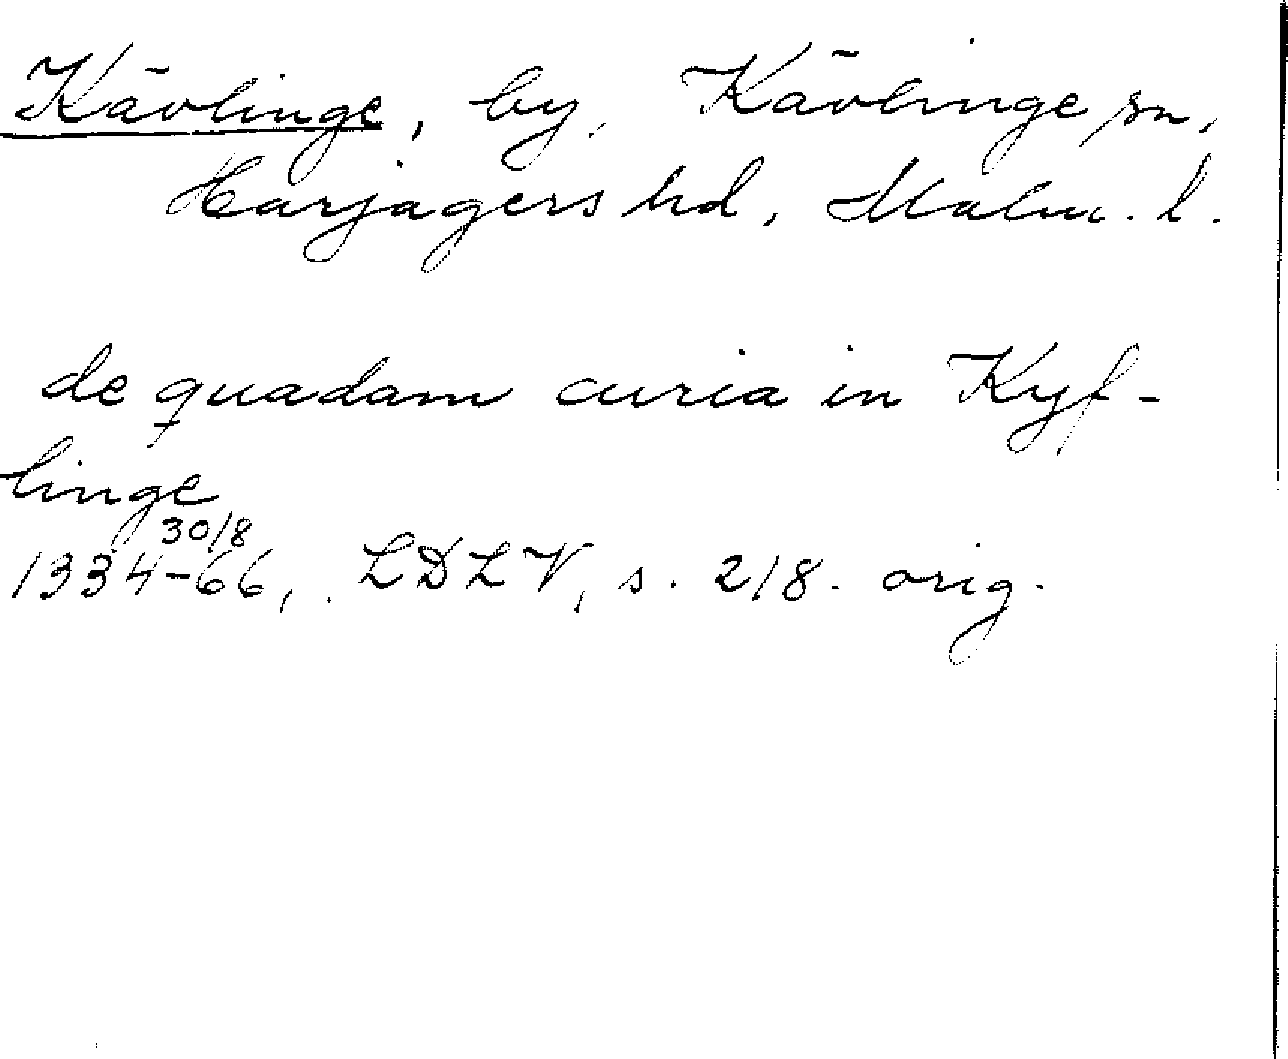 Kävlinge, by, Kävlinge sn,
Harjagers hd, Malm. l.
de quadam curia in Kyf-
linge
30/8
1334-66, LDLV, s. 218. orig.